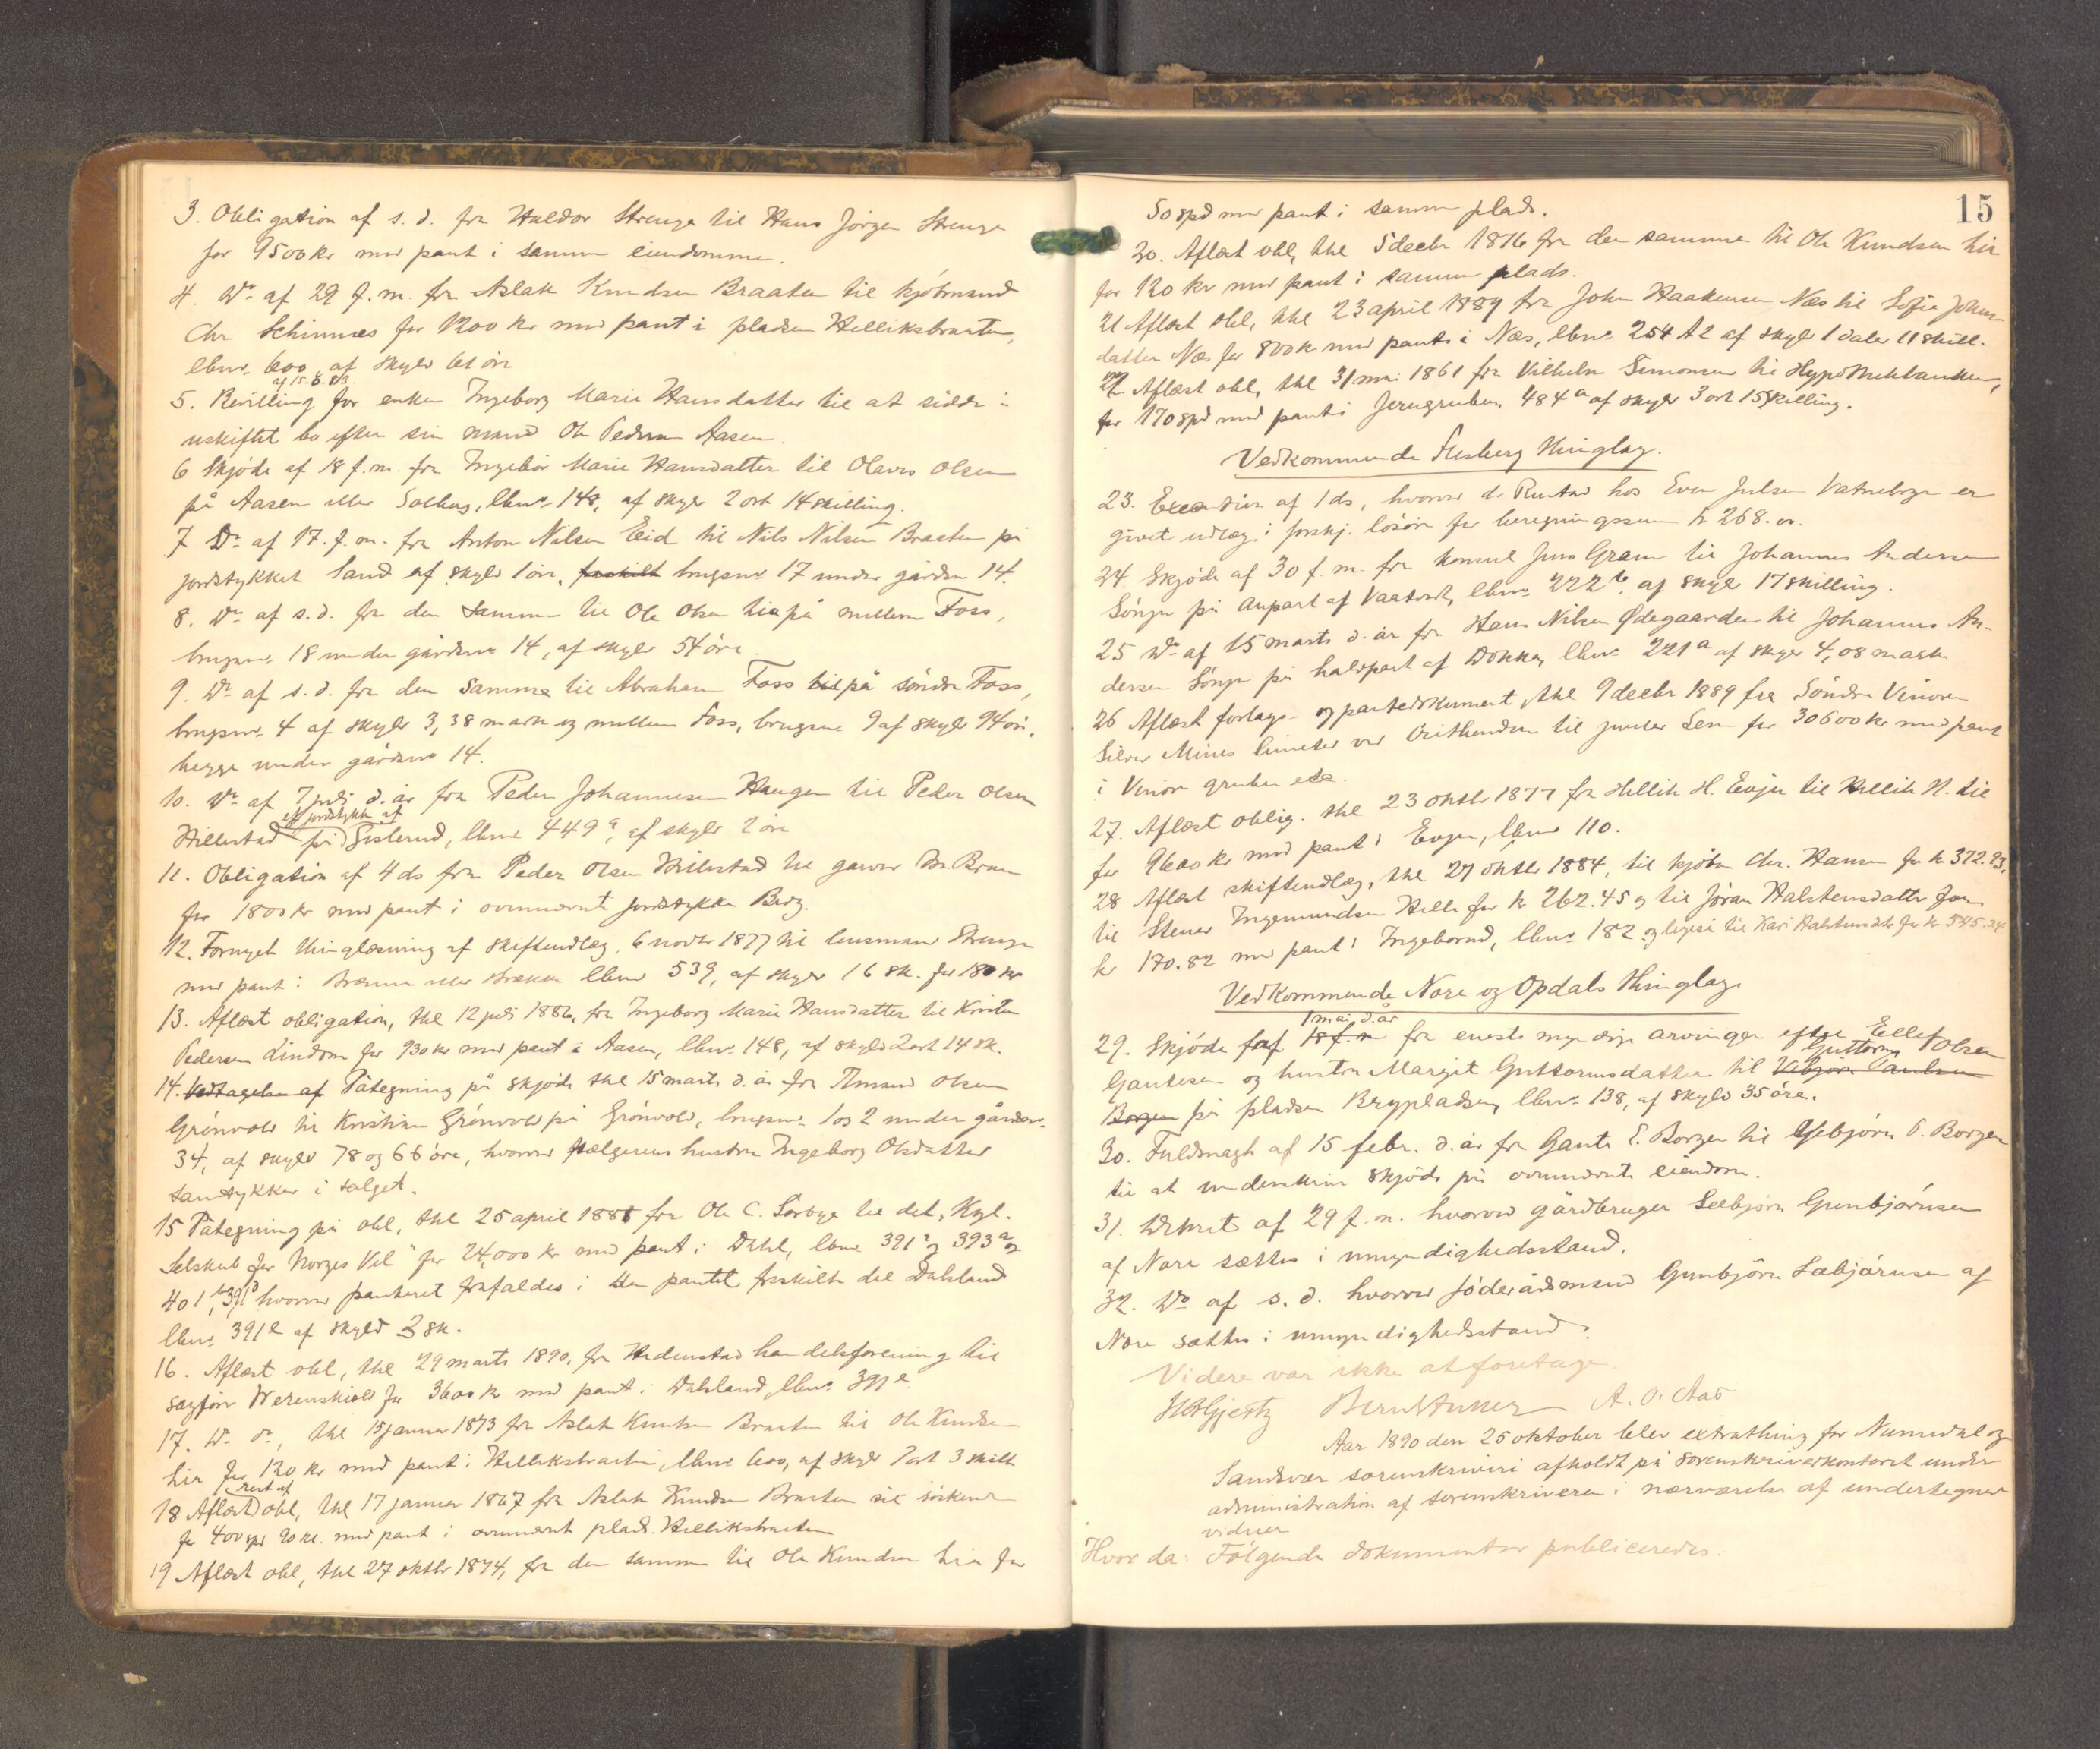 3. Obligation af s. d. fra Haldor Strenge til Hans Jörgen Strenge
for 9500 kr med pant i samme eiendomme.
4. Do af 29 f. m. fra Aslak Knudsen Braaten til kjöbmand
Chr Schinnes for 1200 kr med pant i pladsen Helliksbraaten,
lbnr. 600, af skyld 61 öre
af 15.6.83.
5. Bevilling for enken Ingeborg Marie Hansdatter til at sidde i
uskiftet bo efter sin mand Ole Pedersen Aasen.
6 Skjöde af 18 f. m. fra Ingebor Marie Hansdatter til Olaves Olsen
på Aasen eller Solhaug, lbnr. 148, af skyld 2 ort 14 skilling.
7 Do af 17. f. m. fra Anton Nilsen Eid til Nils Nilsen Braaten på
jordstykket Sand af skyld 1 öre, fraskilt brugsnr 17 under gården 14.
8. Do af s. d. fra den samme til Ole Olsen lia på mellem Foss,
brugsnr. 18 under gårdsnr 14, af skyld 54 öre.
9. Do af s. d. fra den samme til Abraham Foss lia på söndre Foss,
brugsnr. 4 af skyld 3,38 mark og mellem Foss, brugsnr 9 af skyld 94 öre,
begge under gårdsnr 14.
10. Do af 7 juli d. år fra Peder Johannesen Haugen til Peder Olsen
et jordstykke af
Hillestad på Gislerud, lbnr 449a, af skyld 2 öre
11. Obligation af 4 ds fra Peder Olsen Hillestad til garver M. Bruun
for 1800 kr med pant i ovennævnte jordstykke Berg.
12. Fornyet thinglæsning af skifteudlæg, 6 novbr 1877 til lensmand Strenge
med pant i Brænna eller Brække lbnr 539, af skyld 16 sk. for 180 kr
13. Aflæst obligation, thl 12 juli 1886, fra Ingeborg Marie Hansdatter til Kristen
Pedersen Lindom for 930 kr med pant i Aasen, lbnr. 148, af skyld 2 ort 14 sk.
14. Vedtagelse af Påtegning på skjöde thl 15 marts d. år fra Amund Olsen
Grönvold til Kristian Grönvold på Grönvold, brugsnr. 1 og 2 under gårdsnr.
34, af skyld 78 og 66 öre, hvorved sælgerens hustru Ingeborg Olsdatter
samtykker i salget.
15 Påtegning på obl, thl 25 april 1888 fra Ole C. Sørbye til det "Kgl.
Selskab for Norges Vel" for 24,000 kr med pant i Dahl, lbnr 391a og 393a og
401b, 391b hvorved panteret frafaldes i den pantet fraskilte del Dahlsland
lbnr. 391e af skyld 3 sk.
16. Aflæst obl, thl 29 marts 1890, fra Hedenstad handelsforening til
sagfører Werenskiold for 3600 kr med pant i Dahlsland, lbnr. 391e.
17. Do do, thl 15 januar 1873 fra Aslak Knutsen Braaten til Ole Knudsen
Lia for 120 kr med pant i Helliksbraaten, lbnr 600, af skyld 2 ort 3 skill
rest af
18 Aflæst obl, thl 17 januar 1867 fra Aslak Knudsen Braaten til söskende
for 400 spd 90 sk. med pant i ovennævnte plads Helliksbraaten
19 Aflæst obl, thl 27 oktbr 1874, fra den samme til Ole Knudsen Lia for
15
50 spd med pant i samme plads.
20. Aflæst obl, thl 5 decbr 1876 fra den samme til Ole Knudsen Lia
for 120 kr med pant i samme plads.
21 Aflæst obl, thl 23 april 1889 fra John Haakensen Næs til Sofie Johns-
datter Næs for 800 kr med pant i Næs, lbnr. 254 A2 af skyld 1 daler 11 skill.
22 Aflæst obl, thl 31 mai 1861 fra Vilhelm Simonsen til Hypothekbanken,
for 170 spd med pant i Jerngruben 484a af skyld 3 ort 15 skilling.
Vedkommende Flesberg thinglag.
23. Execution af 1 ds, hvorved de Rustad hos Even Julsen Vatnebryn er
givet udlæg i forskj. lösöre for beregningssum kr 268.00.
24. Skjöde af 30 f. m. fra konsul Jens Gram til Johannes Andersen
Söngn på anpart af Vaatvedt, lbnr. 222b, af skyld 17 skilling.
25 Do af 15 marts d. år fra Hans Nilsen Ødegaarden til Johannes An-
dersen Söngn på halvpart af Dokka, lbnr. 221a af skyld 4,08 mark
26 Aflæst forlags- og pantedokument, thl 9 decbr 1889 fra Söndre Vinoren
Silver Mines limeted ved Crithenden til juveler Sem for 30600 kr med pant
i Vinoren gruber etc.
27. Aflæst oblig. thl 23 oktbr 1877 fra Hellik H. Evju til Hellik N. Lie
for 9600 kr med pant i Evju, lbnr 110.
28 Aflæst skifteudlæg, thl 27 oktbr 1884, til kjöbm Chr. Hansen for kr 372.93,
til Stener Ingemundsen Helle for kr 262.45 og til Jöran Halstensdatter for
kr 170.82 med pant i Ingebornd, lbnr. 182 og ligeså til Kari Halstensdtr for kr 585.24
Vedkommende Nore og Opdals thinglag
1 mai d. år
29. Skjöde af 18 f. m fra eneste myndige arvinger efter Ellef Olsen
Guttorm
Gautesen og hustru Margit Guttormsdatter til Vebjörn Paulsen
Borgen på pladsen Brypladsen, lbnr. 138, af skyld 35 öre.
30. Fuldmagt af 15 febr. d. år fra Gaute E. Borgen til Vebjörn P. Borgen
til at underskrive skjöde på ovennævnte eiendom.
31. Dekret af 29 f. m. hvorved gårdbruger Sebjörn Gunbjörnsen
af Nore sættes i umyndighedsstand.
32. Do af s. d. hvorved föderådsmand Gunbjörn Sæbjörnsen af
Nore sættes i umyndighedsstand.
Videre var ikke at foretage.
A. O. Aas
Aar 1890 den 25 oktober blev extrathing for Numedal og
Sandsvær sorenskriveri afholdt på sorenskriverkontoret under
administration af sorenskriveren i nærværelse af undertegnede
vidner
Hvor da: Følgende dokumenter publiceredes.